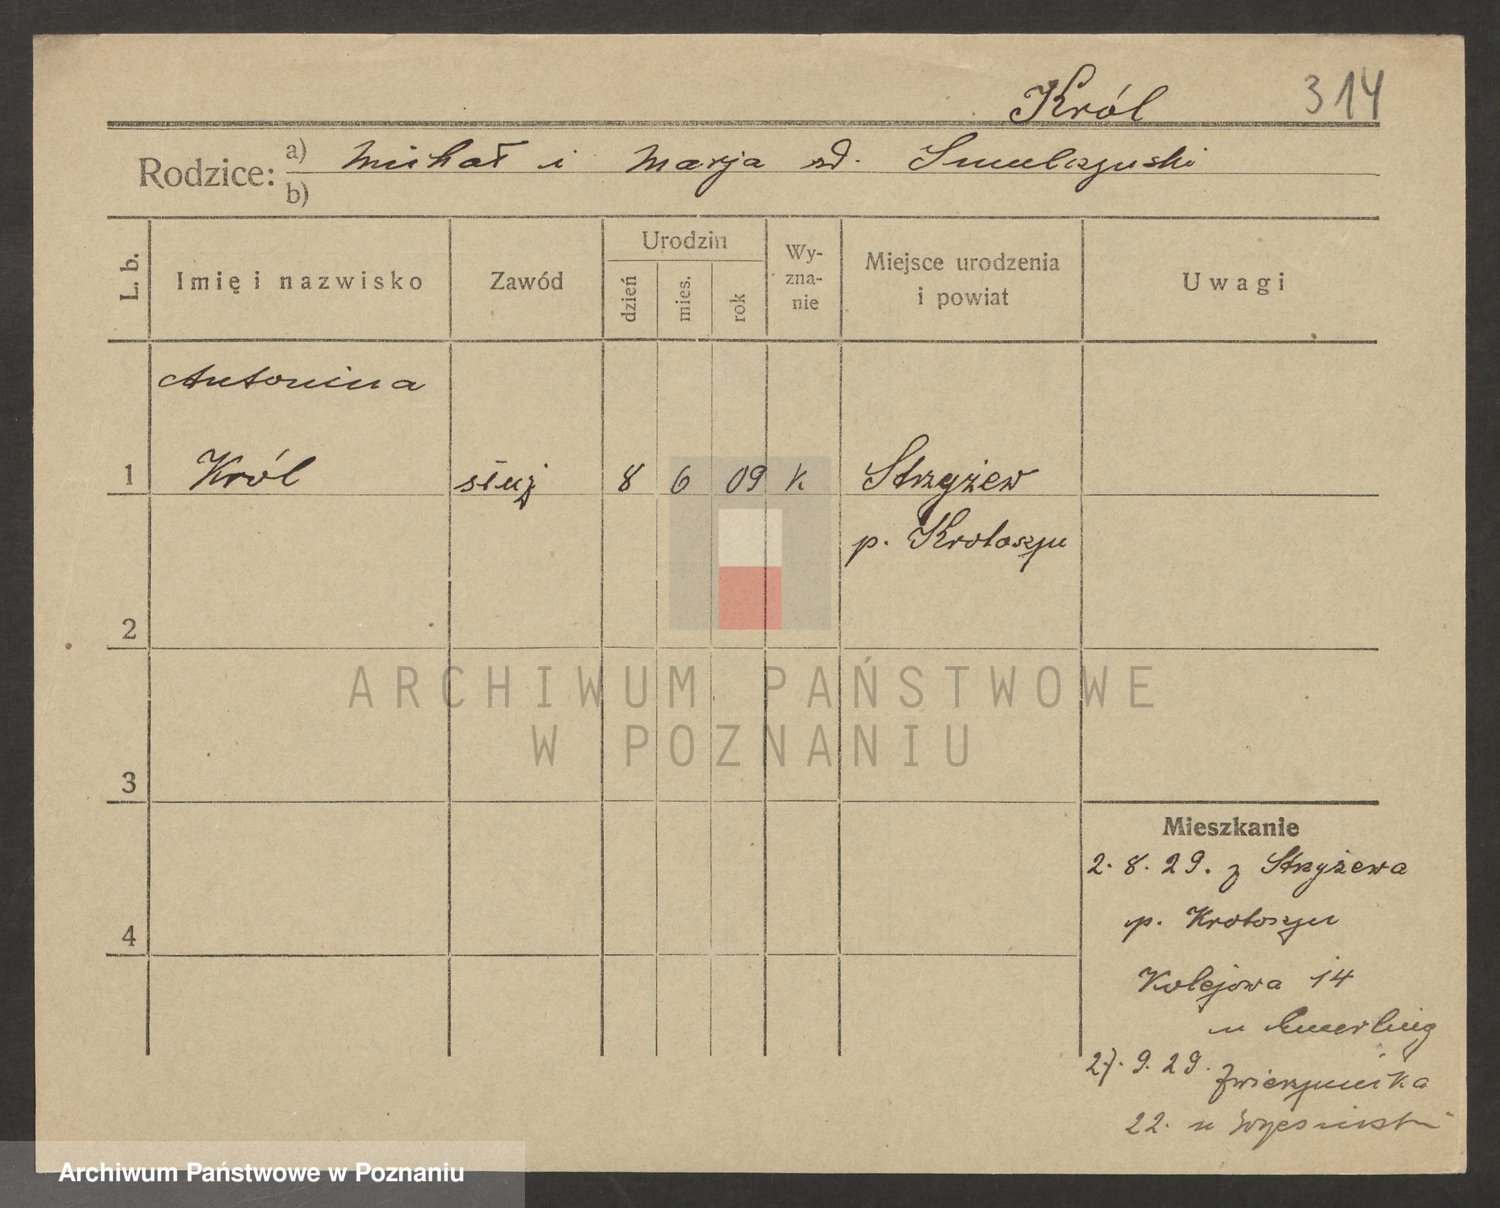 Król 314
Rodzice: a) Michał i Marja zd. Smulczyński
b)
L. b.
Imię i nazwisko
Zawód
Urodzin
dzień
mies.
rok
Wy-
zna-
nie
Miejsce urodzenia
i powiat
Uwagi
Antonina
1 Król służ 8 6 09 k Strzyżew
p. Krotoszyn
2
3
4
Mieszkanie
2. 8. 29. z Strzyżewa
p. Krotoszyn
Kolejowa 14
u Emerling
27. 9. 29. Zwierzyniecka
22. u
ARCHIWUM PAŃSTWOWE
W POZNANIU
Archiwum Państwowe w Poznaniu